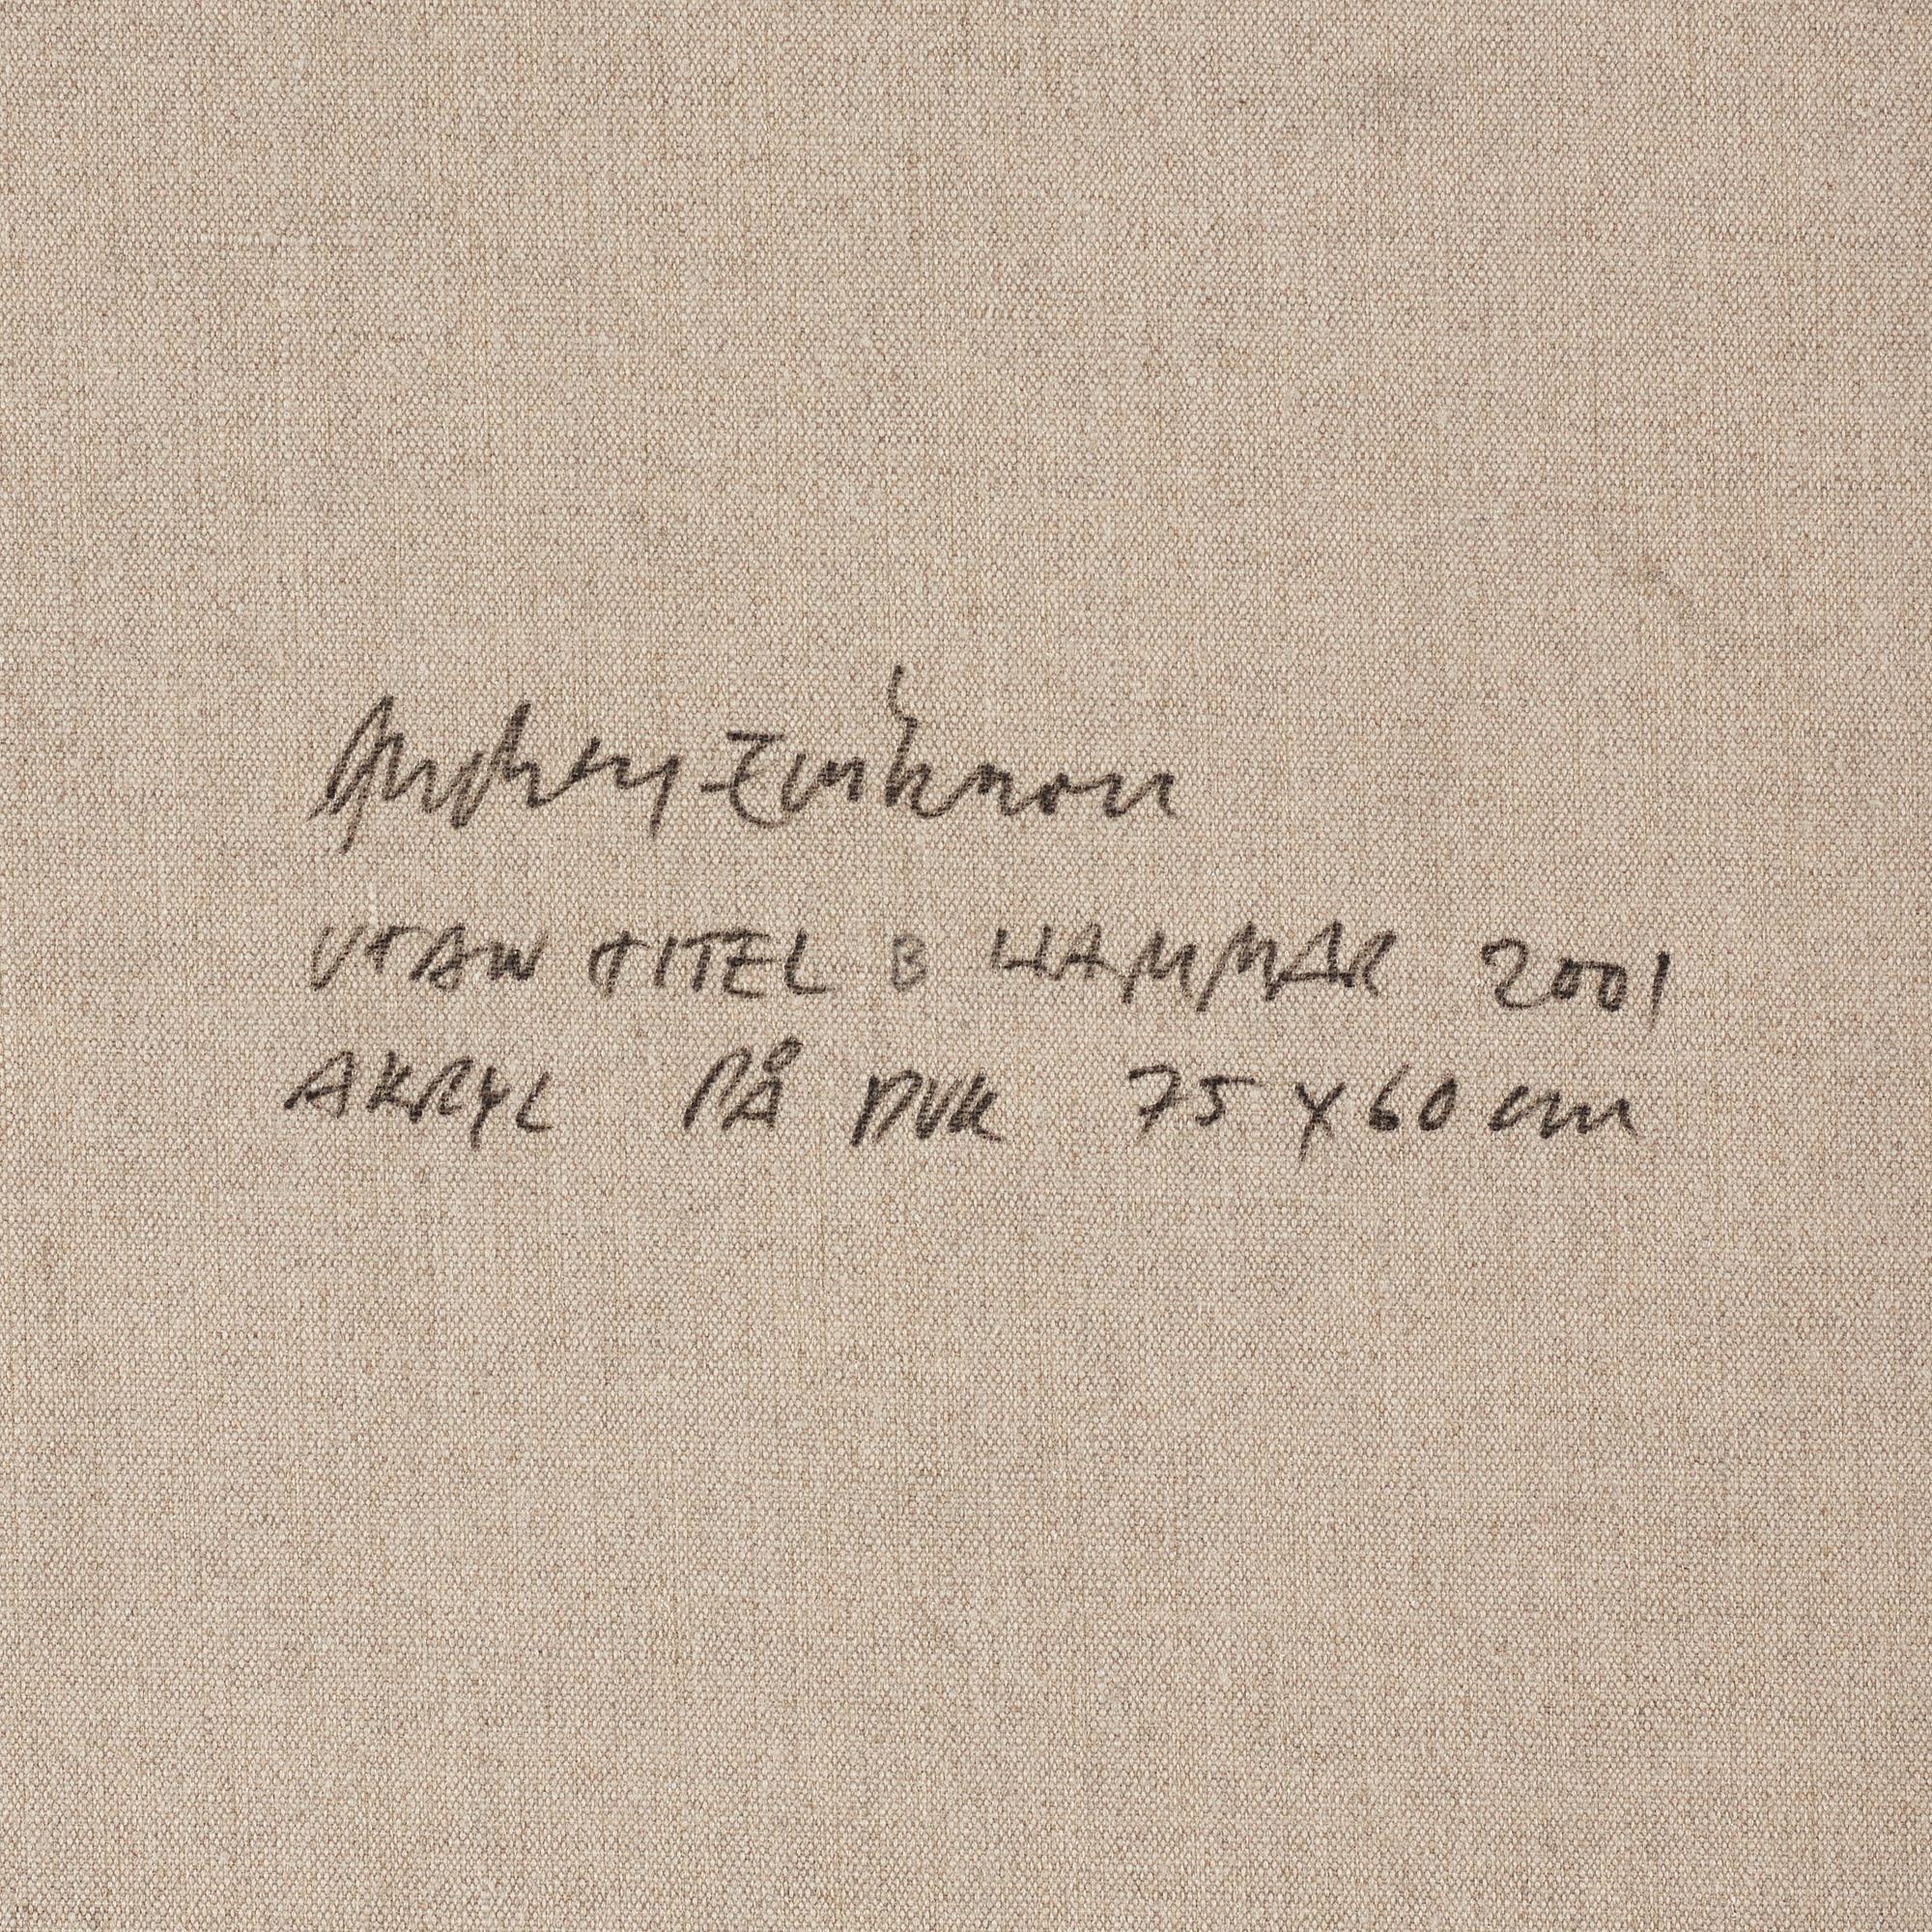 UTAN TITEL B HAMMAR 2001
AKRYL PÅ DUK 75 x 60 cm